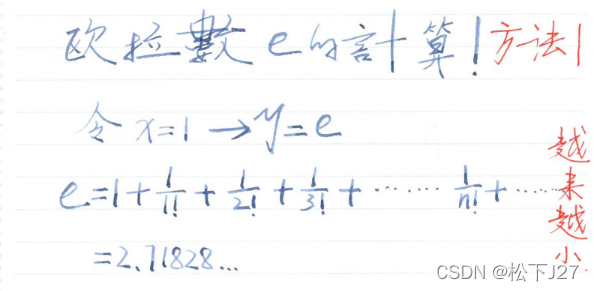 歐拉數e的言计算! 方法1
令 x=1 → y=e
e=1+1/1!+1/2!+1/3!+⋯⋯1/n!+⋯⋯
=2.71828...
越来越小
CSDN @松下J27